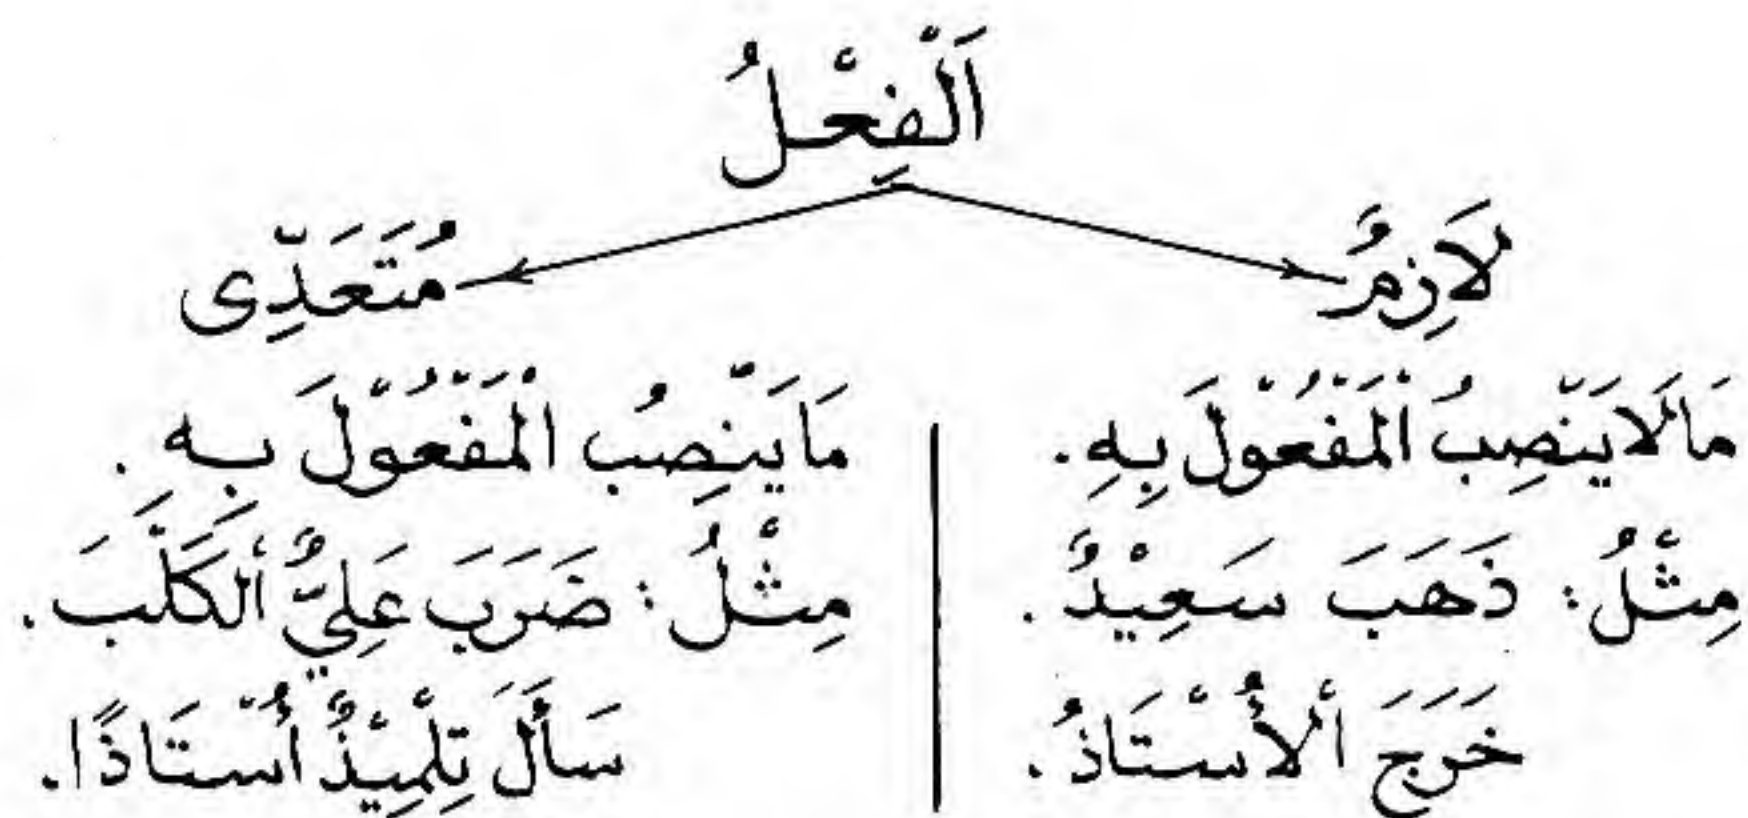 اَلْفِعْلُ
لَازِمٌ
مَالَايَنْصِبُ الْمَفْعُوْلَ بِهِ.
مِثْلُ: ذَهَبَ سَعِيْدٌ.
خَرَجَ الْأُسْتَاذُ.
مُتَعَدِّى
مَايَنْصِبُ الْمَفْعُوْلَ بِهِ.
مِثْلُ: ضَرَبَ عَلِيٌّ الْكَلْبَ.
سَأَلَ تِلْمِيْذٌ أُسْتَاذًا.